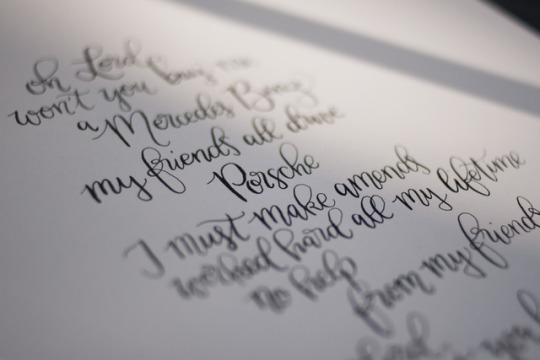 oh Lord
won't you buy me
a Mercedes Benz
my friends all drive
Porsche
I must make amends
worked hard all my lifetime
no help
from my friends